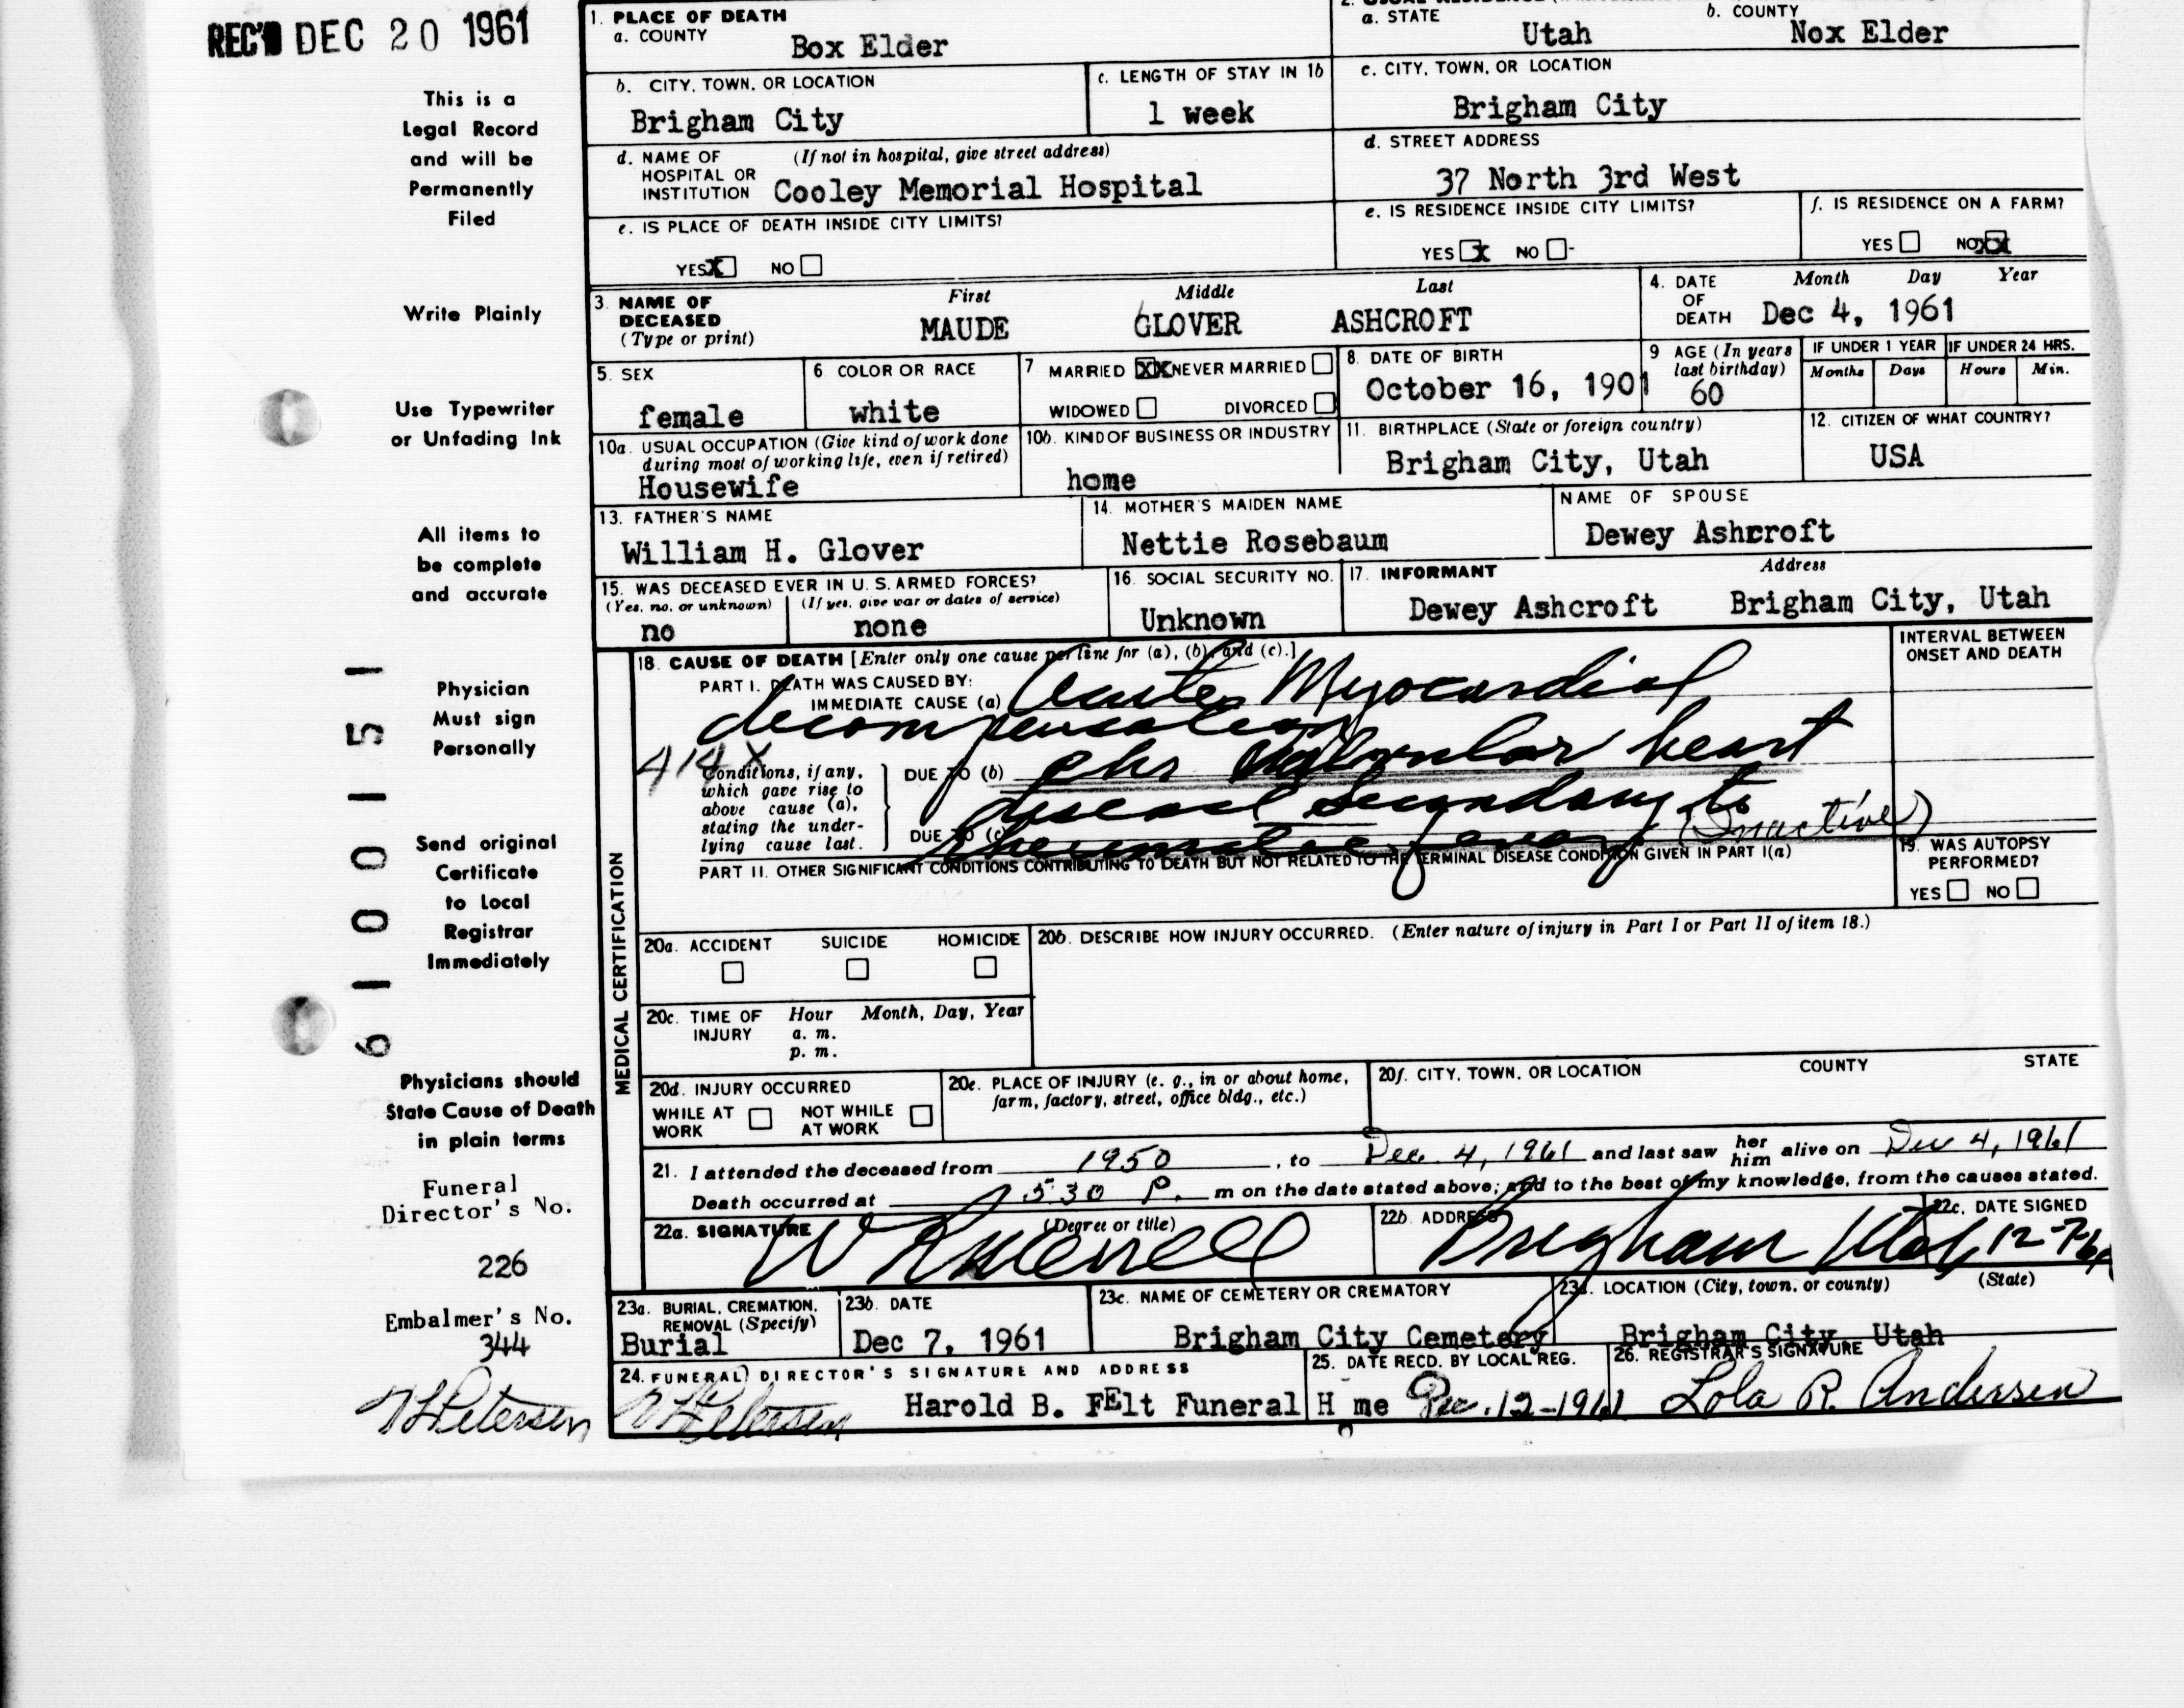 REC'D DEC 20 1961
This is a
Legal Record
and will be
Permanently
Filed
Write Plainly
Use Typewriter
or Unfading Ink
All items to
be complete
and accurate
Physician
Must sign
Personally
Send original
Certificate
to Local
Registrar
Immediately
Physicians should
State Cause of Death
in plain terms
Funeral
Director's No.
226
Embalmer's No.
344
Petersen
61 00 151
1. PLACE OF DEATH
a. COUNTY
Box Elder
a. STATE
Utah
b. COUNTY
Nox Elder
b. CITY, TOWN, OR LOCATION
Brigham City
c. LENGTH OF STAY IN 1b
1 week
c. CITY, TOWN, OR LOCATION
Brigham City
d. NAME OF (If not in hospital, give street address)
HOSPITAL OR
INSTITUTION Cooley Memorial Hospital
d. STREET ADDRESS
37 North 3rd West
e. IS PLACE OF DEATH INSIDE CITY LIMITS?
YES X NO
e. IS RESIDENCE INSIDE CITY LIMITS?
YES X NO -
f. IS RESIDENCE ON A FARM?
YES NO XX
3. NAME OF
DECEASED
(Type or print)
First Middle Last
MAUDE GLOVER ASHCROFT
4. DATE
OF
DEATH
Month Day Year
Dec 4, 1961
5. SEX
female
6 COLOR OR RACE
white
7 MARRIED XX NEVER MARRIED
WIDOWED DIVORCED
8. DATE OF BIRTH
October 16, 1901
9 AGE (In years
last birthday)
60
IF UNDER 1 YEAR IF UNDER 24 HRS.
Months Days Hours Min.
10a. USUAL OCCUPATION (Give kind of work done
during most of working life, even if retired)
Housewife
10b. KIND OF BUSINESS OR INDUSTRY
home
11. BIRTHPLACE (State or foreign country)
Brigham City, Utah
12. CITIZEN OF WHAT COUNTRY?
USA
13. FATHER'S NAME
William H. Glover
14. MOTHER'S MAIDEN NAME
Nettie Rosebaum
NAME OF SPOUSE
Dewey Ashcroft
15. WAS DECEASED EVER IN U. S. ARMED FORCES?
(Yes, no, or unknown) (If yes, give war or dates of service)
no none
16. SOCIAL SECURITY NO.
Unknown
17. INFORMANT Address
Dewey Ashcroft Brigham City, Utah
MEDICAL CERTIFICATION
18. CAUSE OF DEATH [Enter only one cause per line for (a), (b), and (c).]
INTERVAL BETWEEN
ONSET AND DEATH
PART I. DEATH WAS CAUSED BY:
IMMEDIATE CAUSE (a) Acute Myocardial
decompensation
414X
Conditions, if any,
which gave rise to
above cause (a),
stating the under-
lying cause last.
DUE TO (b) chr Valvular heart
disease secondary to
DUE TO (c) rheumatic fever (Inactive)
PART II. OTHER SIGNIFICANT CONDITIONS CONTRIBUTING TO DEATH BUT NOT RELATED TO THE TERMINAL DISEASE CONDITION GIVEN IN PART I(a)
19. WAS AUTOPSY
PERFORMED?
YES NO
20a. ACCIDENT SUICIDE HOMICIDE
20b. DESCRIBE HOW INJURY OCCURRED. (Enter nature of injury in Part I or Part II of item 18.)
20c. TIME OF Hour Month, Day, Year
INJURY a. m.
p. m.
20d. INJURY OCCURRED
WHILE AT NOT WHILE
WORK AT WORK
20e. PLACE OF INJURY (e. g., in or about home,
farm, factory, street, office bldg., etc.)
20f. CITY, TOWN, OR LOCATION COUNTY STATE
21. I attended the deceased from 1950, to Dec. 4, 1961 and last saw her him alive on Dec 4, 1961
Death occurred at 530 P. m on the date stated above; and to the best of my knowledge, from the causes stated.
22a. SIGNATURE (Degree or title)
22b. ADDRESS
Brigham Utah
22c. DATE SIGNED
12-7-61
23a. BURIAL, CREMATION,
REMOVAL (Specify)
Burial
23b. DATE
Dec 7, 1961
23c. NAME OF CEMETERY OR CREMATORY
Brigham City Cemetery
23d. LOCATION (City, town, or county) (State)
Brigham City, Utah
24. FUNERAL DIRECTOR'S SIGNATURE AND ADDRESS
Petersen Harold B. FElt Funeral H me
25. DATE RECD. BY LOCAL REG.
Dec. 12-1961
26. REGISTRAR'S SIGNATURE
Lola R. Andersen